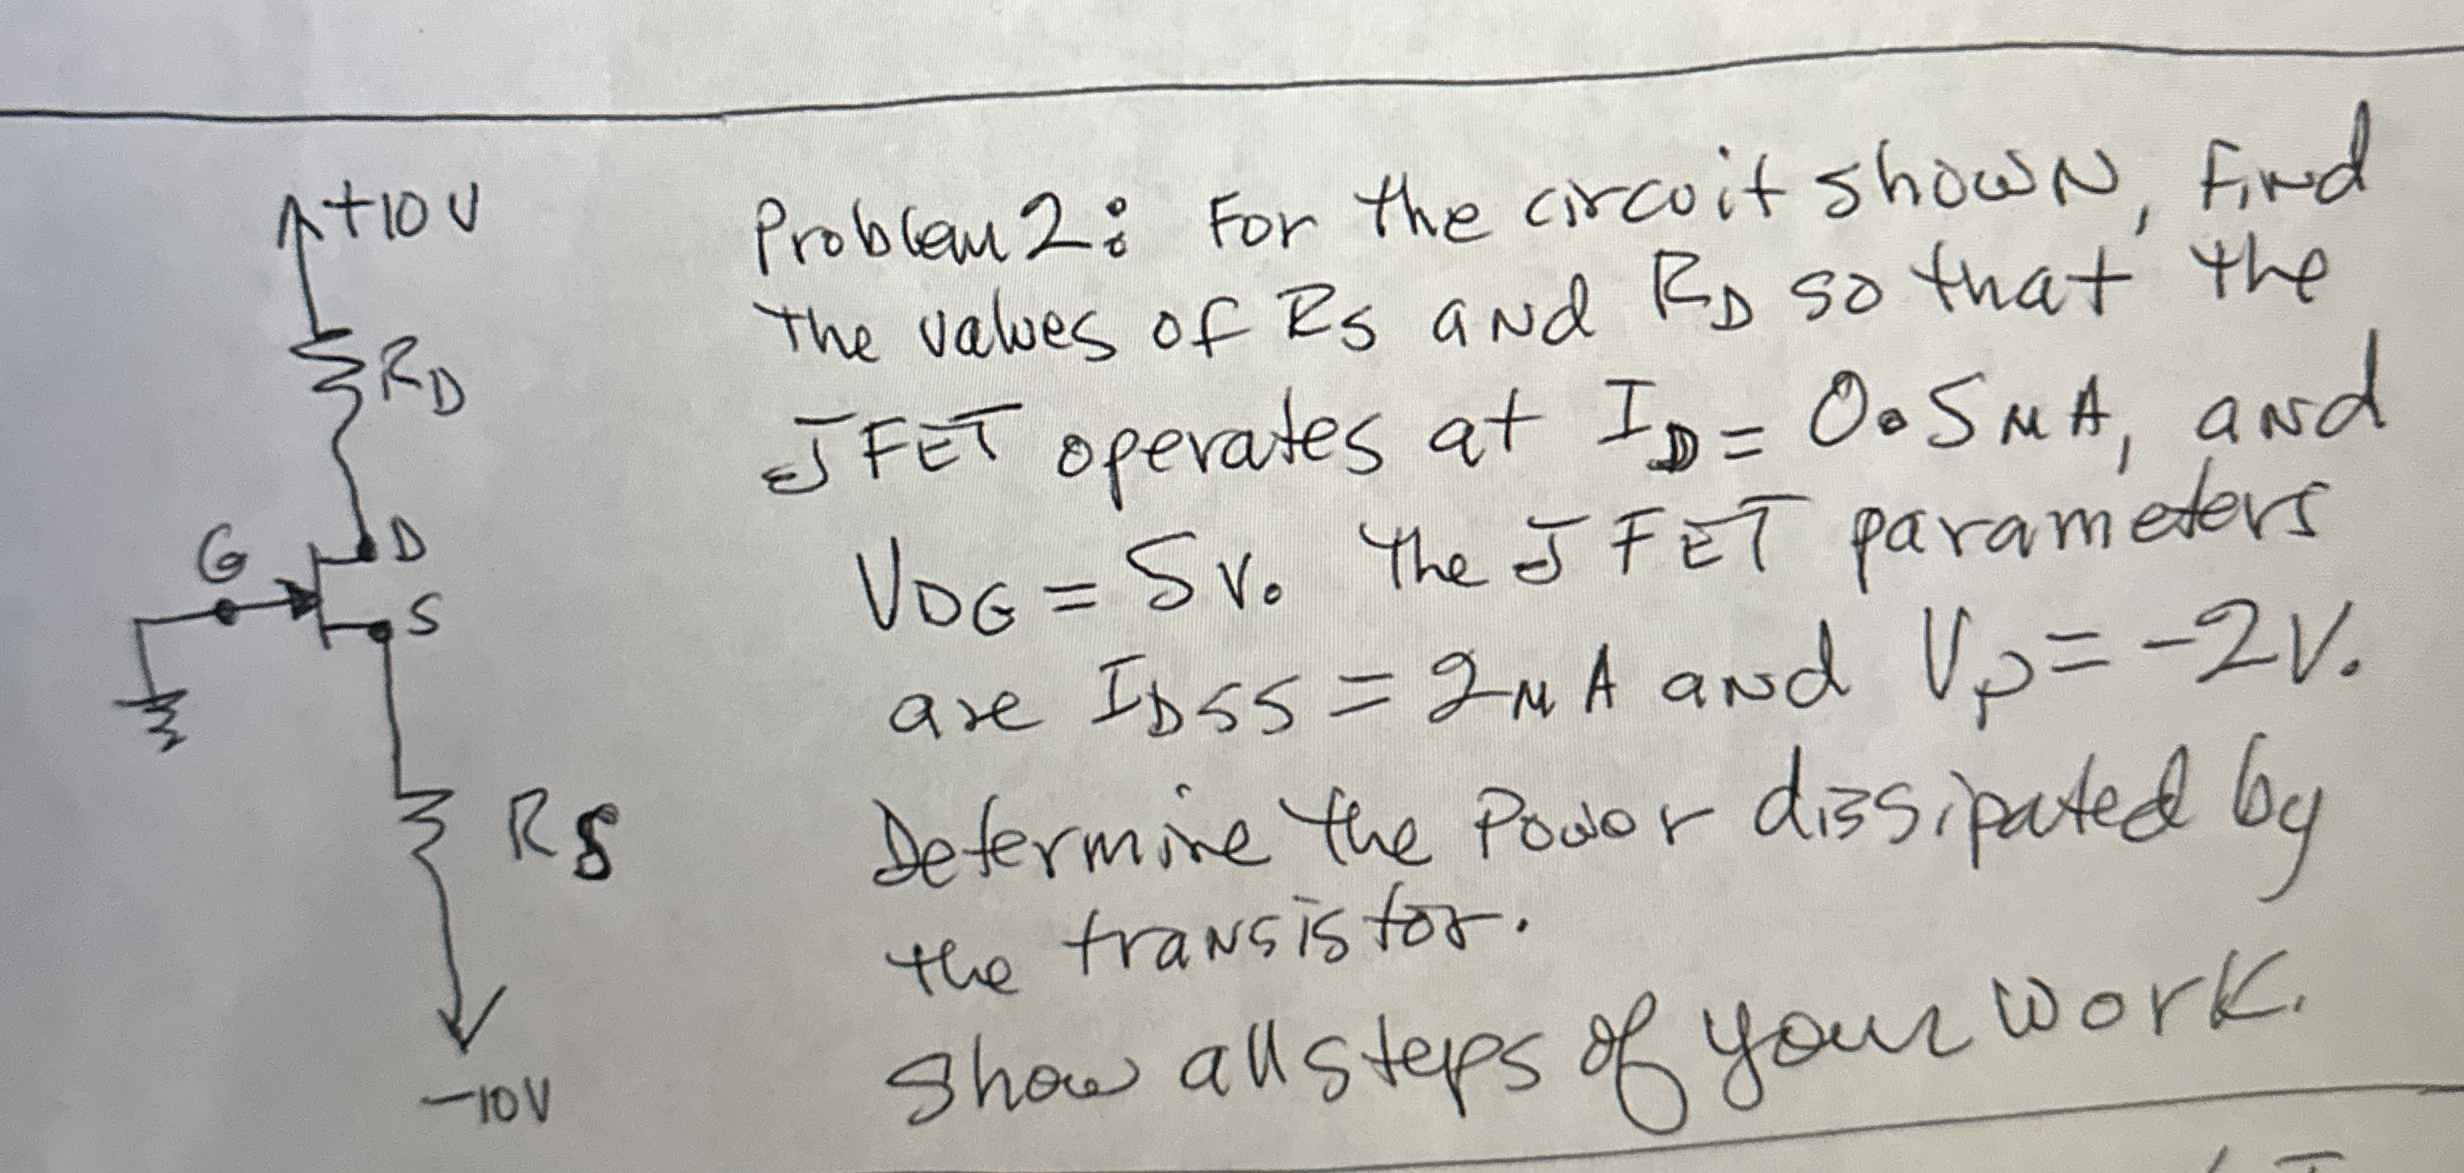 +10V
RD
G
D
S
RS
-10V
Problem 2: For the circuit shown, find
the values of RS and RD so that the
JFET operates at ID = 0.5 mA, and
VDG = 5V. The JFET parameters
are IDSS = 2mA and VP = -2V.
Determine the Power dissipated by
the transistor.
Show all steps of your work.